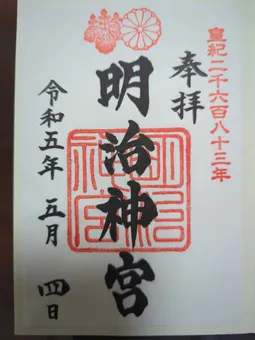 皇紀二千六百八十三年
奉拝
明治神宮
令和五年 五月 四日
明治神宮